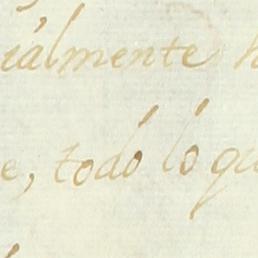 ialmente
e, todo lo qu